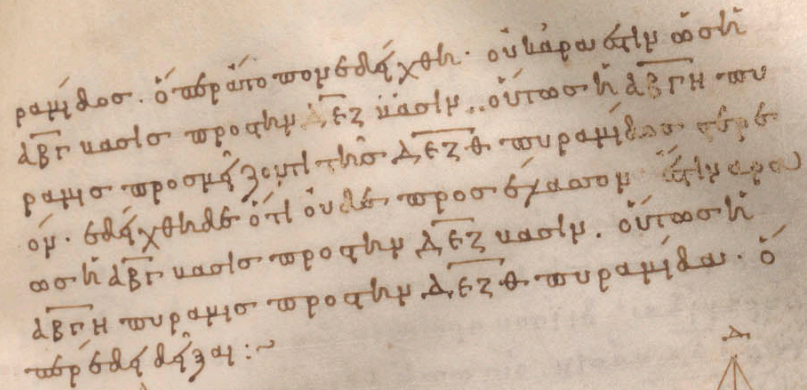 ραμίδος. ὅπερ ἄτοπον ἐδείχθη· οὐκ ἄρα ἐστὶν ὡς ἡ
ΑΒΓ βάσις πρὸς τὴν ΔΕΖ βάσιν.. οὕτως ἡ ΑΒΓΗ πυ
ραμὶς πρὸς μεῖζόν τι τῆς ΔΕΖΘ πυραμίδος στερε
όν· ἐδείχθη δὲ ὅτι οὐδὲ πρὸς ἔλασσον ἔστιν ἄρα
ὡς ἡ ΑΒΓ βάσις πρὸς τὴν ΔΕΖ βάσιν. οὕτως ἡ
ΑΒΓΗ πυραμὶς πρὸς τὴν ΔΕΖΘ πυραμίδα· ὅ
περ ἔδει δεῖξαι :~
Δ